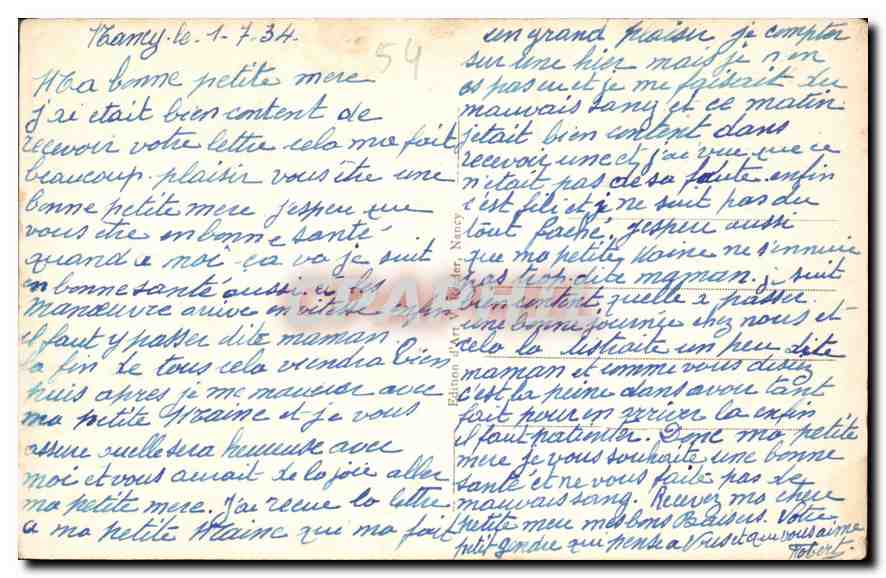 Nancy. le. 1-7.34.
54
Ma bonne petite mere
j'ai etait bien content de
recevoir votre lettre cela ma fait
beaucoup plaisir vous être une
bonne petite mere j'espeu que
vous être en bonne santé
quand a moi ça va je suit
en bonne santé aussi, a les
manœuvre arive en vitesse enfin
il faut y passer dite maman
la fin de tous cela viendra bien
puis apres je me marier avec
ma petite Maine et je vous
assure quelle sera heureuse avec
moi et vous aurait de la joie aller
ma petite mere. J'ai recue la lettre
a ma petite Maine qui ma fait
un grand plaisir je compter
sur une hier mais je n'en
es pas eu et je me faisait du
mauvais sang et ce matin
j'etait bien content dans
recevoir une et j'ai vue que ce
n'était pas de sa faute enfin
c'est fini et je ne suit pas du
tout faché. j'espeu aussi
que ma petite Maine ne s'ennuie
pas trop dite maman. je suit
bien content quelle a passer
une bonne journée chez nous et
cela la distraite un peu dite
maman et comme vous disez
c'est la peine dans avoir tant
fait pour en arriver la enfin
il faut patienter. Donc ma petite
mere je vous souhaite une bonne
santé et ne vous faite pas de
mauvais sang. Recever ma cheu
petite meu mes bons Baisers. Votre
petit gendre qui pense a Vous et qui vous aime
Robert.
Edition d'Art Nancy